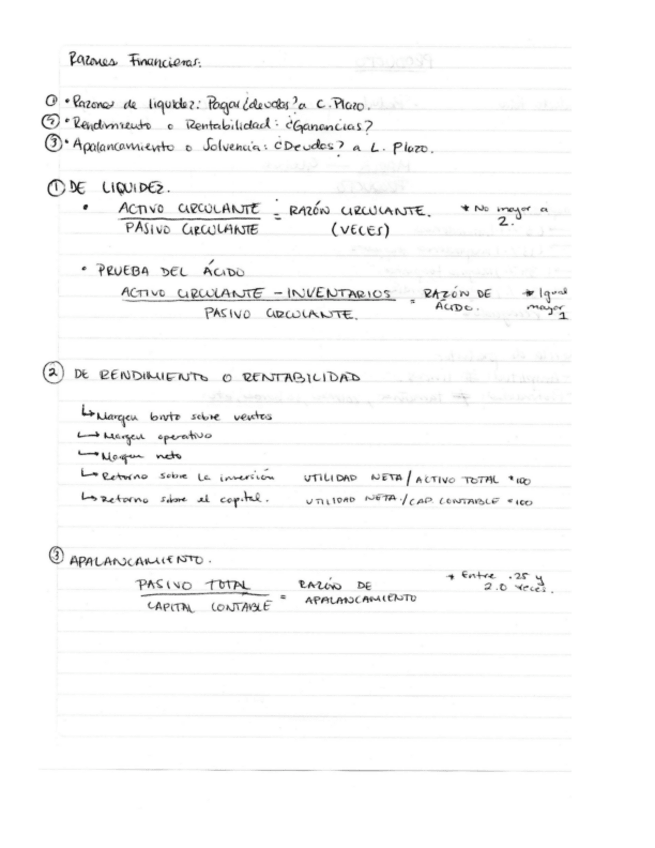 Razones Financieras:
① • Razones de liquidez: Pagar ¿deudas? a C. Plazo.
② • Rendimiento o Rentabilidad: ¿Ganancias?
③ • Apalancamiento o Solvencia: ¿Deudas? a L. Plazo.
① DE LIQUIDEZ.
• ACTIVO CIRCULANTE = RAZÓN CIRCULANTE. * No mayor a
PASIVO CIRCULANTE (VECES) 2.
• PRUEBA DEL ÁCIDO
ACTIVO CIRCULANTE - INVENTARIOS = RAZÓN DE * Igual
PASIVO CIRCULANTE. ÁCIDO. mayor 1
② DE RENDIMIENTO O RENTABILIDAD
↳ Margen bruto sobre ventas
↳ Margen operativo
↳ Margen neto
↳ Retorno sobre la inversión UTILIDAD NETA / ACTIVO TOTAL *100
↳ Retorno sobre el capital. UTILIDAD NETA / CAP. CONTABLE *100
③ APALANCAMIENTO.
PASIVO TOTAL = RAZÓN DE * Entre .25 y
CAPITAL CONTABLE APALANCAMIENTO 2.0 veces.